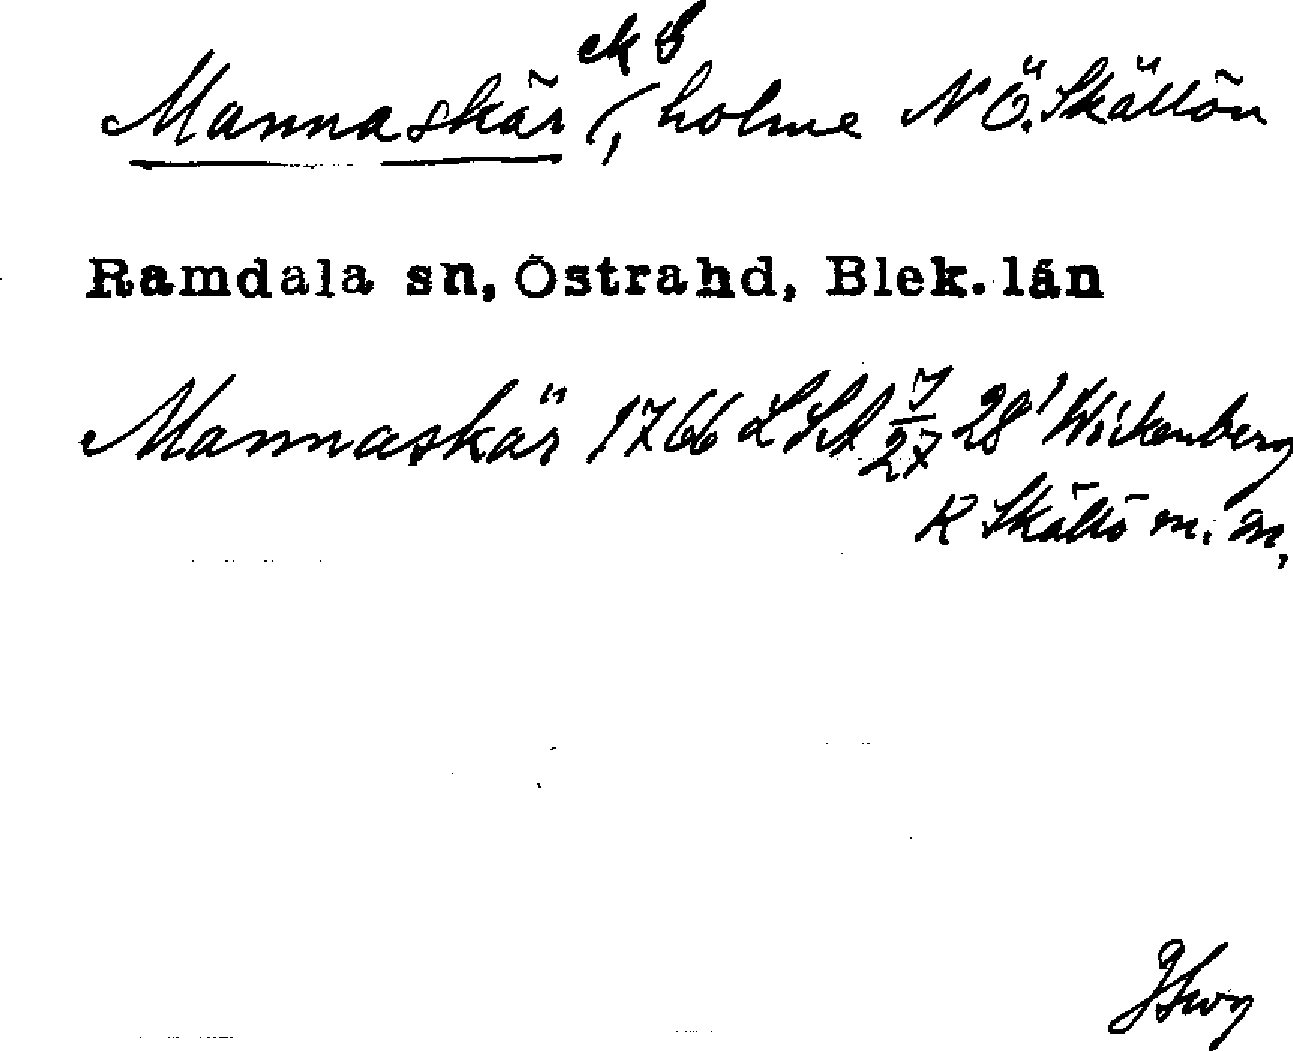 ek 8
Mannaskär, holme N Ö. Skällön
Ramdala sn, Östrahd, Blek. län
Mannaskär 1766 LSA 7/27 28' Wickenberg
R Skällö m. m.